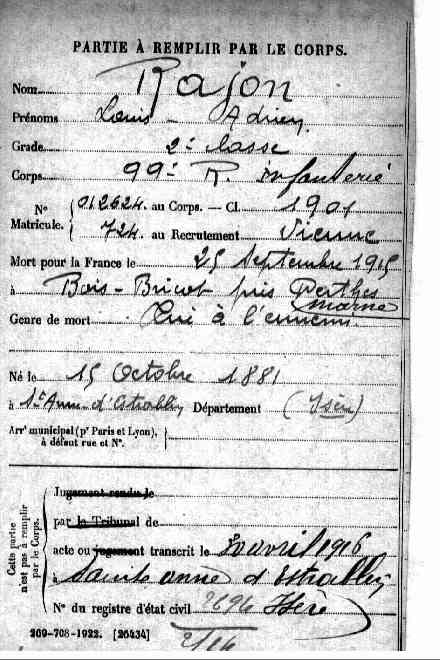 PARTIE À REMPLIR PAR LE CORPS.
Nom Rajon
Prénoms Louis - Adrien
Grade 2e classe
Corps 99e R. infanterie
N° Matricule. { 012624. au Corps. — Cl. 1901
724. au Recrutement Vienne
Mort pour la France le 25 Septembre 1915
à Bois-Bricot près Perthes
Marne
Genre de mort Tué à l'ennemi.
Né le 15 Octobre 1881
à Ste Anne d'Estrablin Département (Isère)
Arrt municipal (pr Paris et Lyon),
à défaut rue et N°.
Cette partie n'est pas à remplir par le Corps.
Jugement rendu le
par le Tribunal de
acte ou jugement transcrit le avril 1916
à Sainte anne d'Estrablin
N° du registre d'état civil Isère
209-708-1922. [26434]